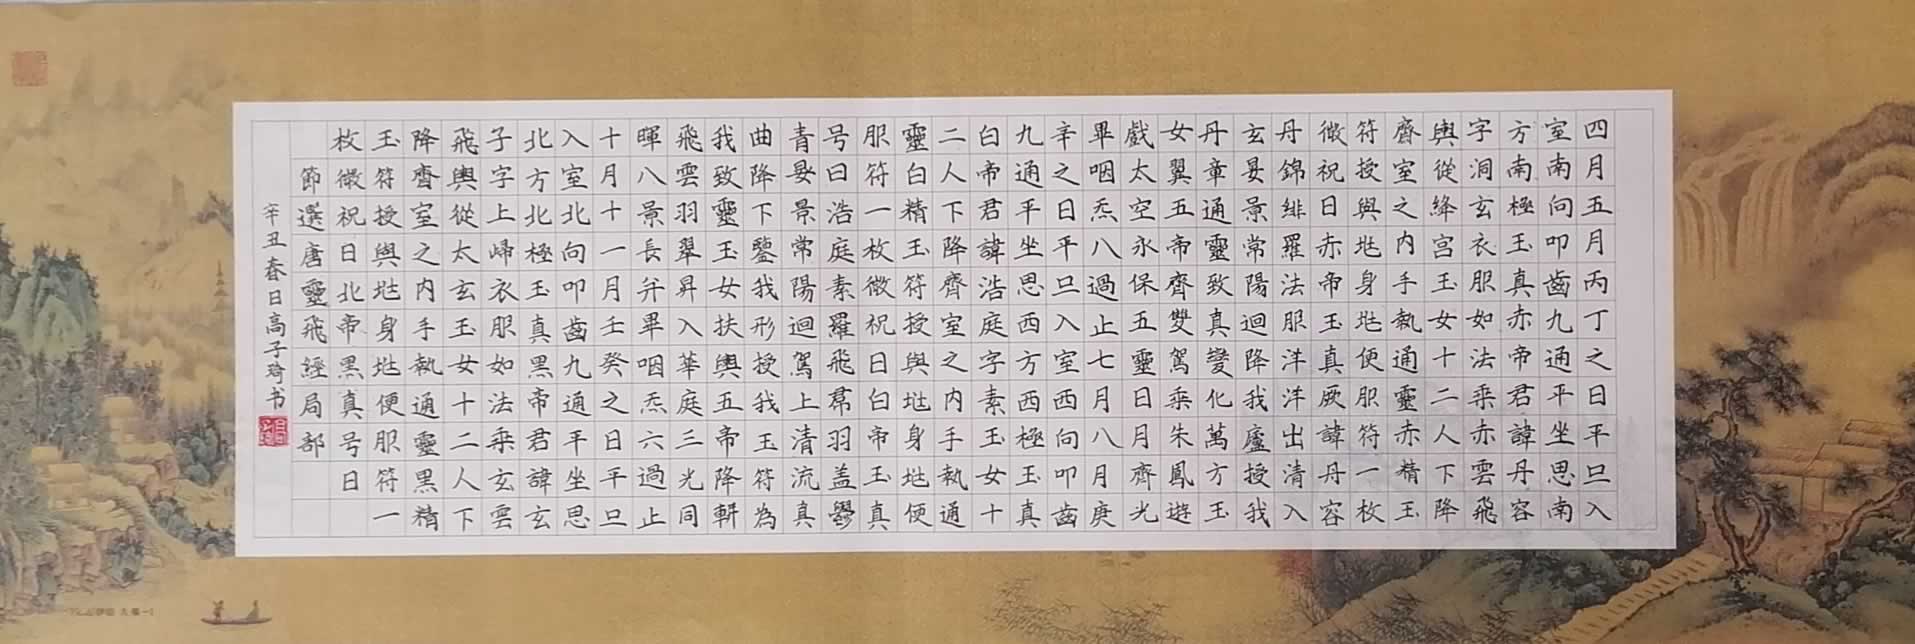 四月五月丙丁之日平旦入
室南向叩齒九通平坐思南
方南極玉真赤帝君諱丹容
字洞玄衣服如法乘赤雲飛
輿從絳宮玉女十二人下降
齋室之内手執通靈赤精玉
符授與兆身兆便服符一枚
微祝曰赤帝玉真厥諱丹容
丹錦緋羅法服洋洋出清入
玄晏景常陽迴降我廬授我
丹章通靈致真變化萬方玉
女翼五帝齊雙駕乘朱鳳遊
戲太空永保五靈日月齊光
畢咽炁八過止七月八月庚
辛之日平旦入室西向叩齒
九通平坐思西方西極玉真
白帝君諱浩庭字素玉女十
二人下降齋室之内手執通
靈白精玉符授與兆身兆便
服符一枚微祝曰白帝玉真
号曰浩庭素羅飛帬羽盖鬱
青晏景常陽迴駕上清流真
曲降下鑒我形授我玉符為
我致靈玉女扶輿五帝降軿
飛雲羽翠昇入華庭三光同
暉八景長并畢咽炁六過止
十月十一月壬癸之日平旦
入室北向叩齒九通平坐思
北方北極玉真黑帝君諱玄
子字上歸衣服如法乘玄雲
飛輿從太玄玉女十二人下
降齋室之内手執通靈黑精
玉符授與兆身兆便服符一
枚微祝曰北帝黑真号曰
節選唐靈飛經局部
辛丑春日高子琦书